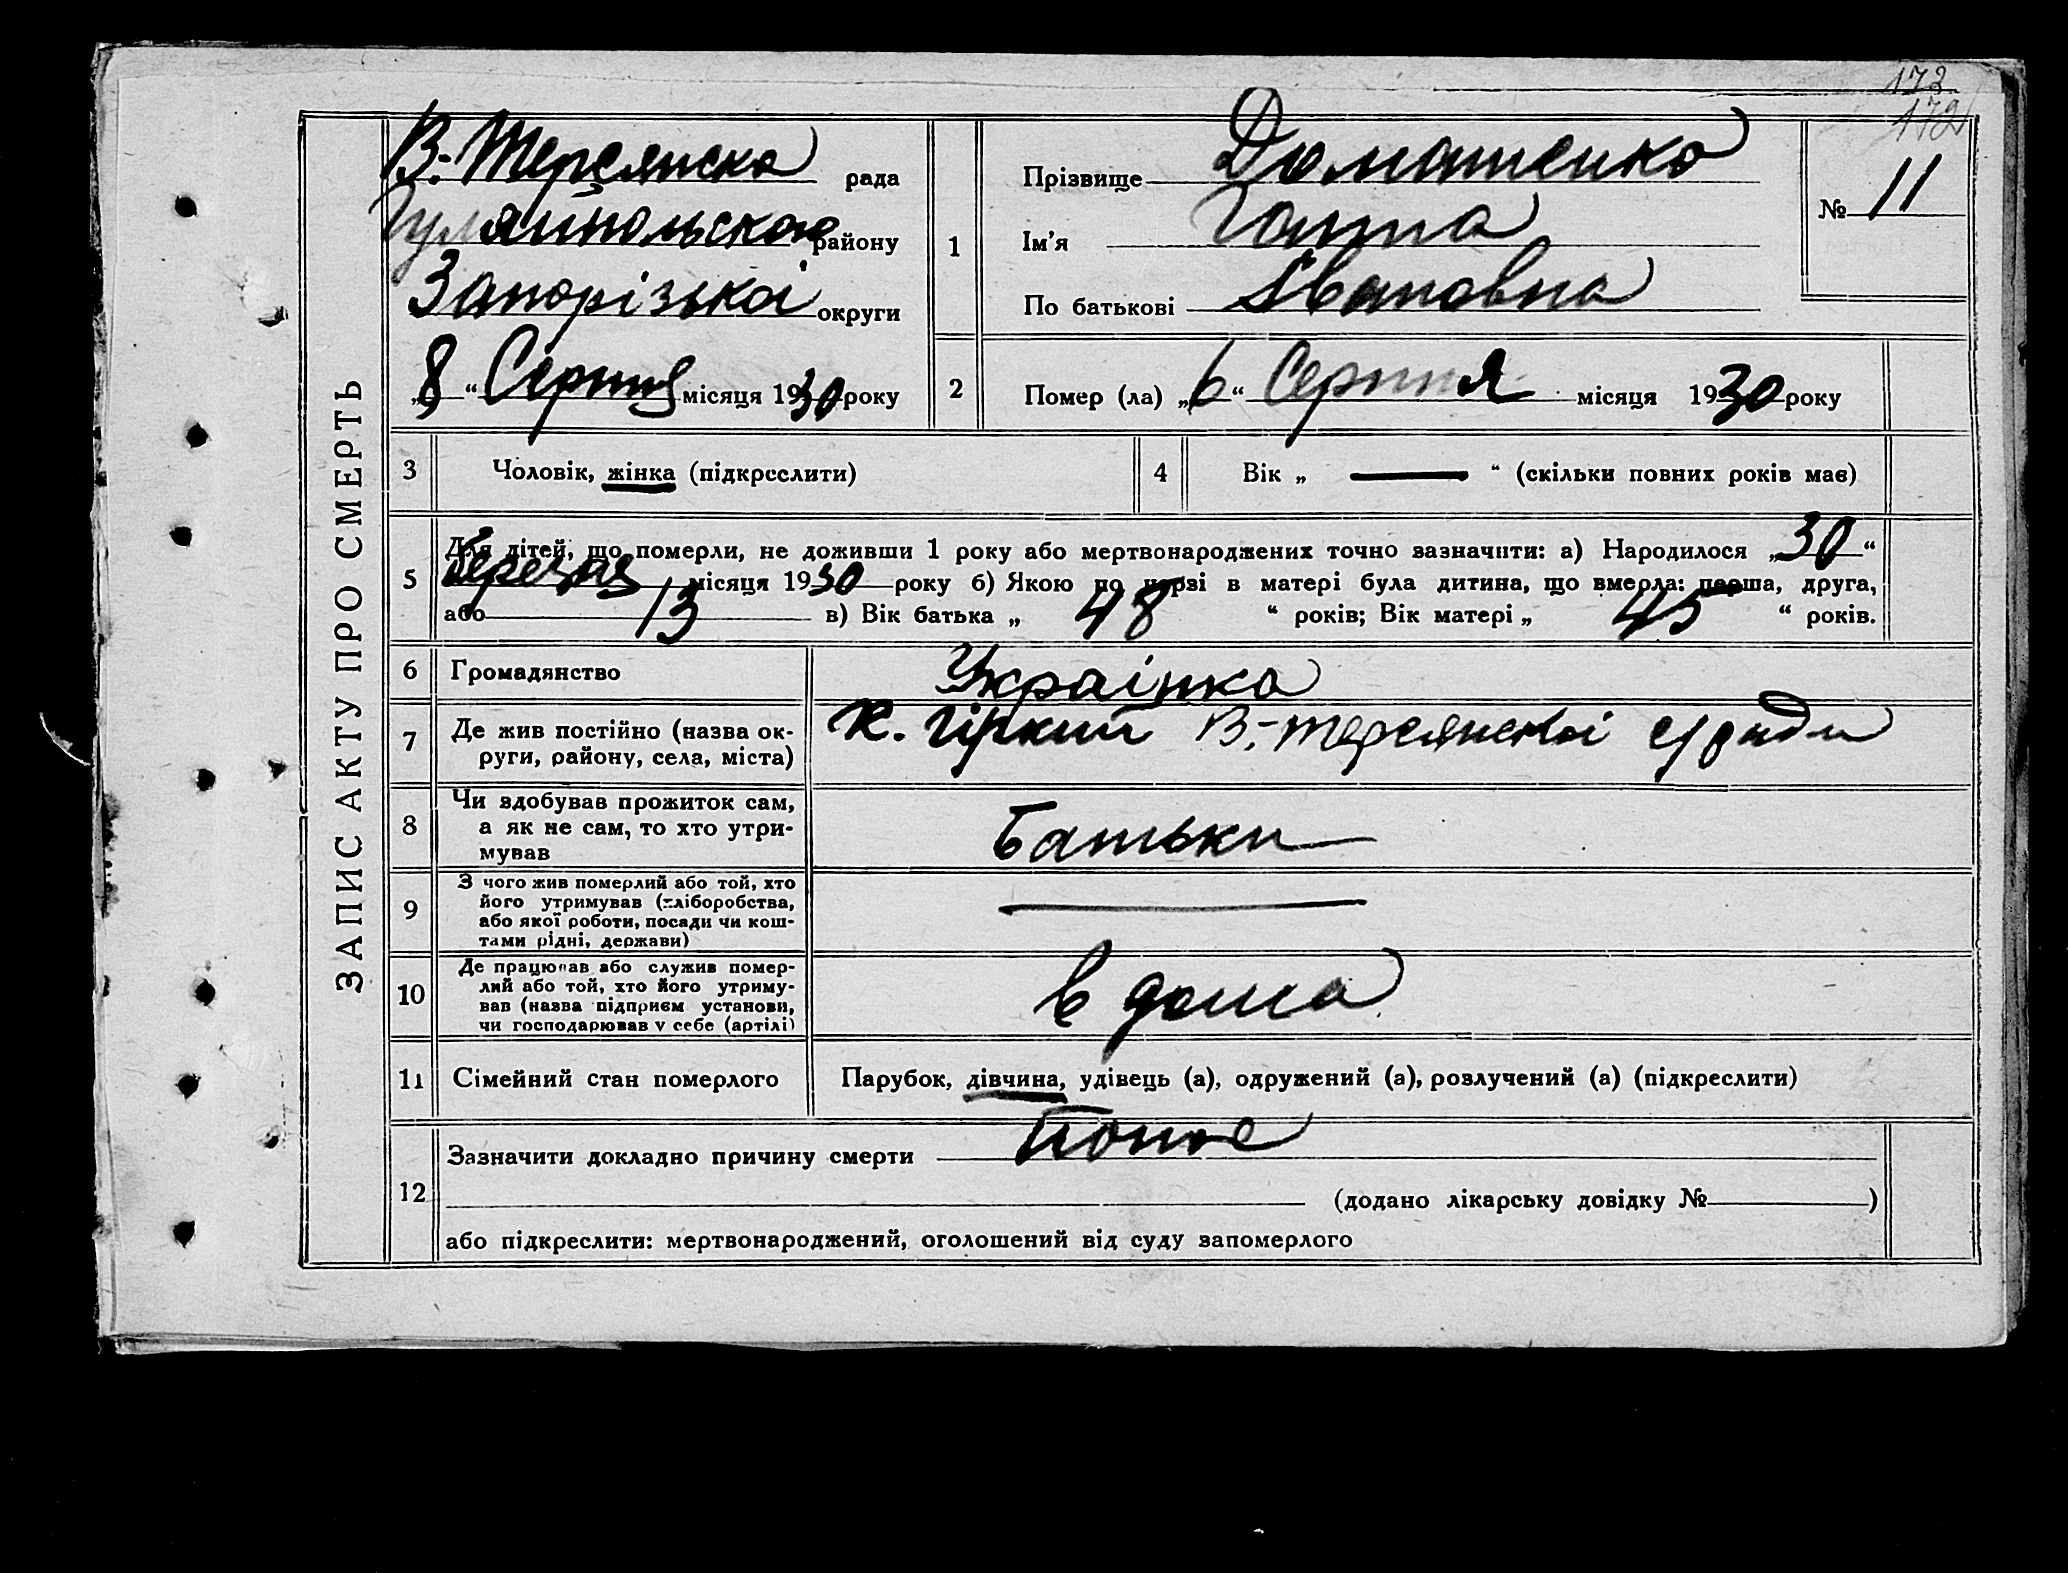 173
172
ЗАПИС АКТУ ПРО СМЕРТЬ
В.-Терсянска рада
Гуляйпольского району
Запорізької округи
„8“ Серпня місяця 1930 року
1
Прізвище Доматенко
Ім'я Ганна
По батькові Івановна
№ 11
2
Помер (ла) „6“ Серпня місяця 1930 року
3
Чоловік, жінка (підкреслити)
4
Вік „ — “ (скільки повних років має)
5
Для дітей, що померли, не доживши 1 року або мертвонароджених точно зазначити: а) Народилося „30“
Березня місяця 1930 року б) Якою по черзі в матері була дитина, що вмерла: перша, друга,
або 13 в) Вік батька „ 48 “ років; Вік матері „ 45 “ років.
6
Громадянство
Українка
7
Де жив постійно (назва ок-
руги, району, села, міста)
К. Гіркий В.-Терсянскої с/ради
8
Чи здобував прожиток сам,
а як не сам, то хто утри-
мував
Батьки
9
З чого жив померлий або той, хто
його утримував (хліборобства,
або якої роботи, посади чи кош-
тами рідні, держави)
10
Де працював або служив помер-
лий або той, хто його утриму-
вав (назва підприєм установи,
чи господарював у себе (артілі)
в дома
11
Сімейний стан померлого
Парубок, дівчина, удівець (а), одружений (а), розлучений (а) (підкреслити)
12
Зазначити докладно причину смерти Понос
(додано лікарську довідку № )
або підкреслити: мертвонароджений, оголошений від суду запомерлого